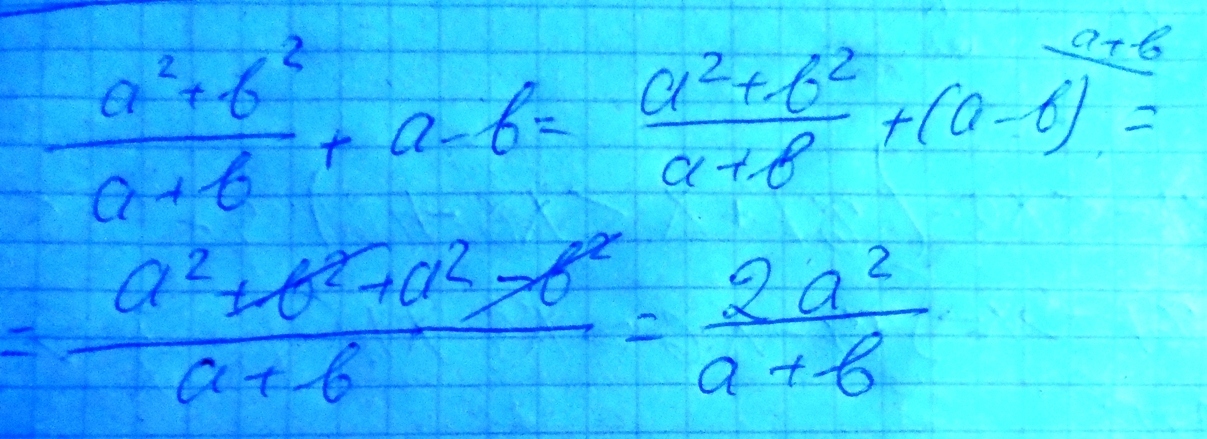 (a² + b²)/(a + b) + a - b = (a² + b²)/(a + b) + (a - b)^(a+b) =
= (a² + b² + a² - b²)/(a + b) = 2a²/(a + b)